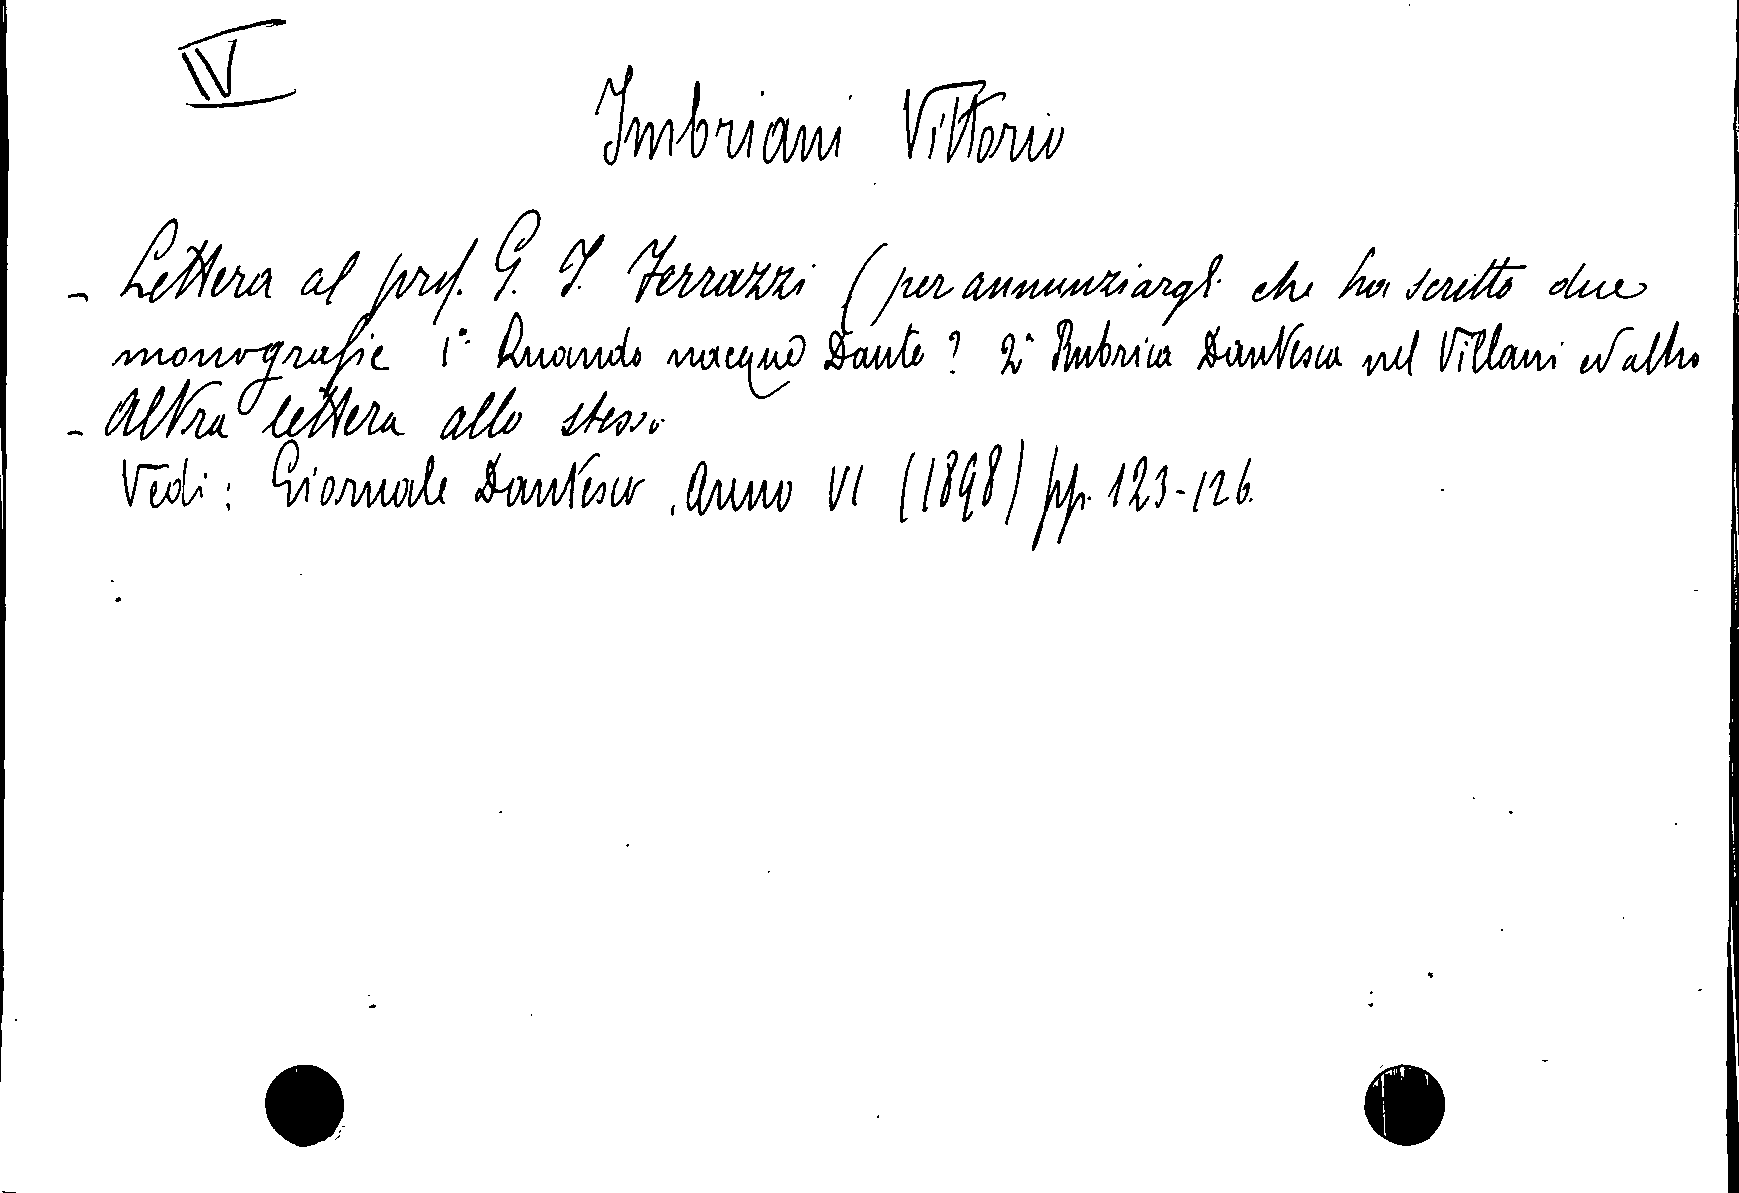 IV
Imbriani Vittorio
- Lettera al prof. G. J. Ferrazzi (per annunziargli che ha scritto due
monografie 1° Quando nacque Dante? 2° Rubrica Dantesca nel Villani ed altro
- Altra lettera allo stesso
Vedi: Giornale Dantesco. Anno VI (1898) pp. 123-126.